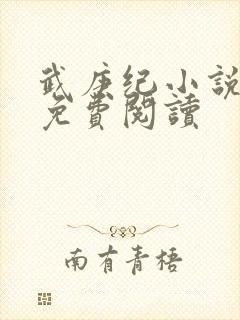 武庚纪小説
免費閱讀
南有青梧